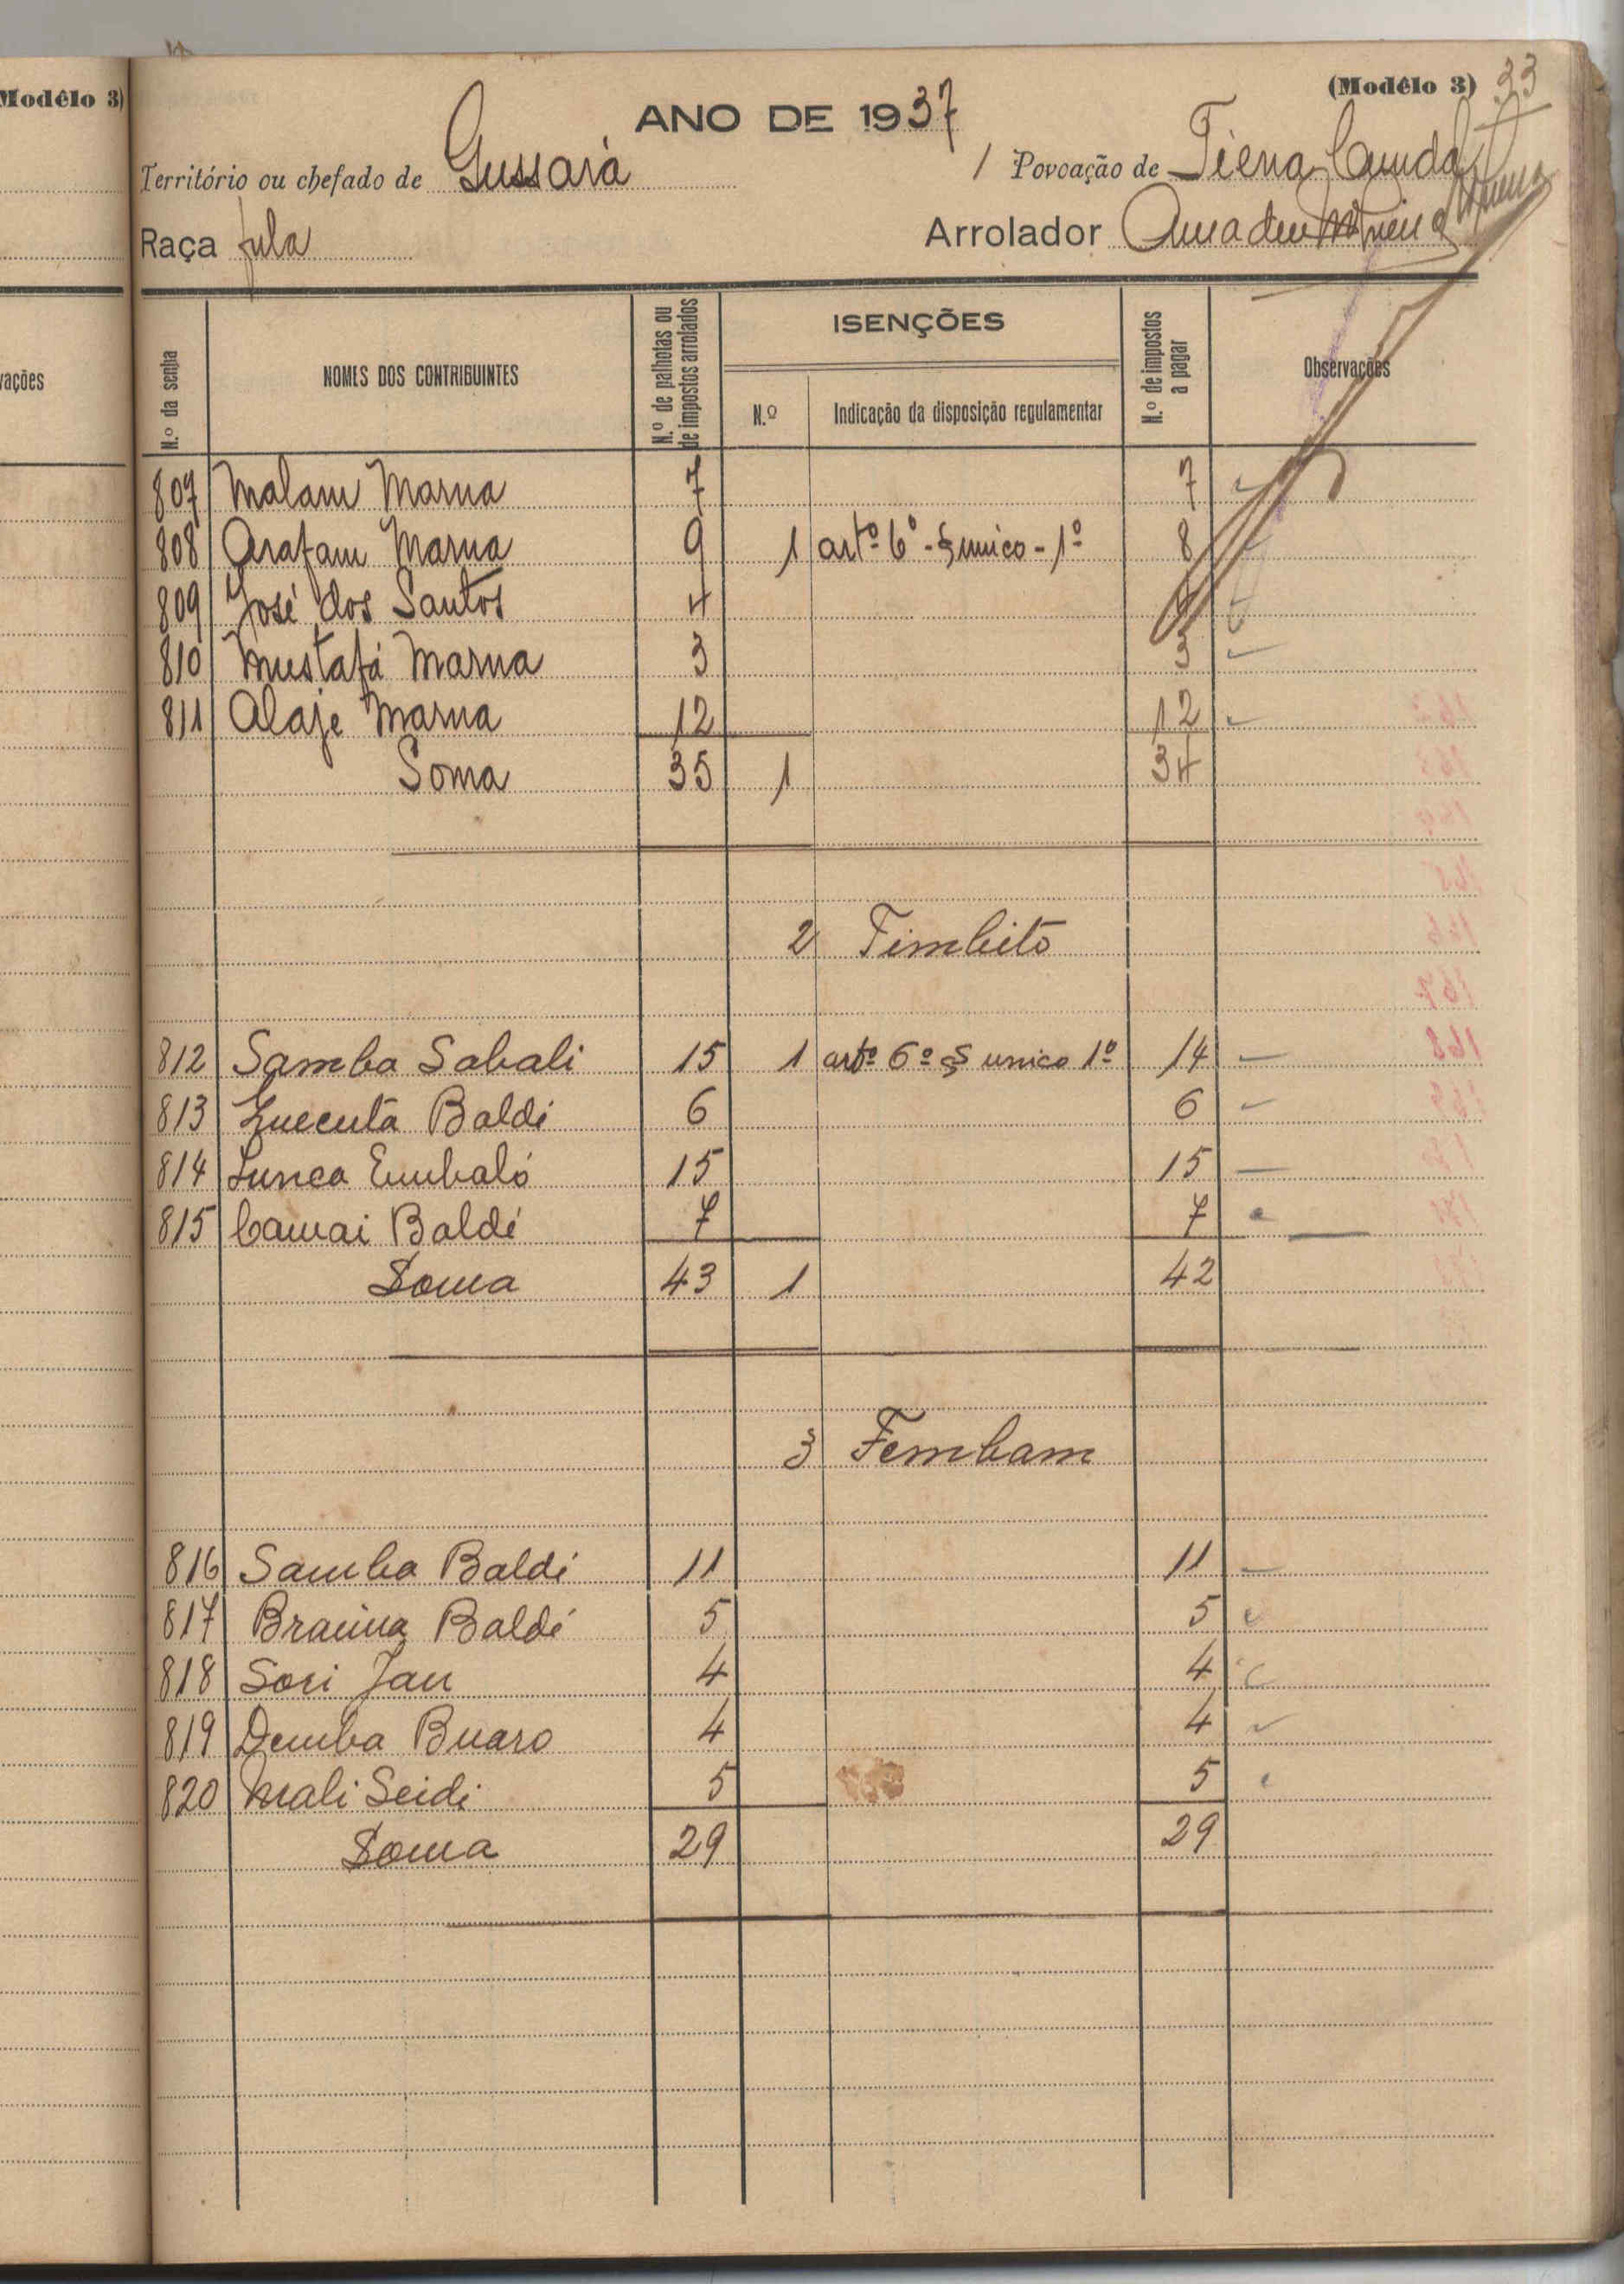 Modêlo 3)
(Modêlo 3) 33
ANO DE 1937
Território ou chefado de Gussará
1 Povoação de Tiena Cunda
Raça fula
Arrolador Amadeu
vações
N.º da senha
NOMES DOS CONTRIBUINTES
N.º de palhotas ou de impostos arrolados
ISENÇÕES
N.º
Indicação da disposição regulamentar
N.º de impostos a pagar
Observações
807 Malam Marna 7 7
808 Arafam Marna 9 1 artº 6º - § unico - 1º 8
809 José dos Santos 4 4
810 Mustafá Marna 3 3
811 Alaje Marna 12 12
Soma 35 1 34
2 Timbito
812 Samba Sabali 15 1 artº 6º § unico 1º 14
813 Baldé 6 6
814 Embaló 15 15
815 Camai Baldé 7 7
Soma 43 1 42
3 Fembam
816 Samba Baldé 11 11
817 Braima Baldé 5 5
818 Sori Jau 4 4
819 Demba Buaro 4 4
820 Mali Seidi 5 5
Soma 29 29